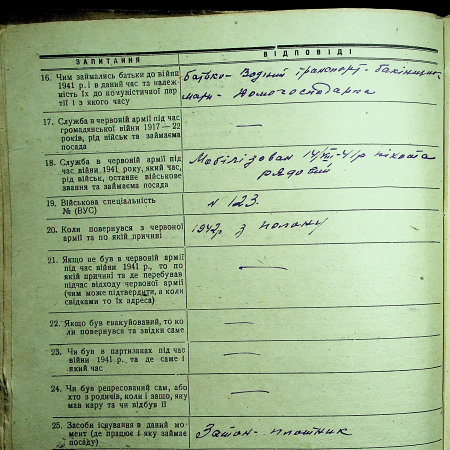 ЗАПИТАННЯ
ВІДПОВІДІ
16. Чим займались батьки до війни
1941 р. і в даний час та належ-
ність їх до комуністичної пар-
тії і з якого часу
батько - Водний транспорт -
мати - Домогосподарка
17. Служба в червоній армії під час
громадянської війни 1917—22
років, рід військ та займаєма
посада
—
18. Служба в червоній армії під
час війни 1941 року, який час,
рід військ, останнє військове
звання та займаєма посада
Мобілізован 14/VII-41р піхота
рядовий
19. Військова спеціальність
№ (ВУС)
№ 123.
20. Коли повернувся з червоної
армії та по якій причині
1942р. з полону
21. Якщо не був в червоній армії
під час війни 1941 р., то по
якій причині та де перебував
підчас відходу червоної армії
(чим може підтвердити, а коли
свідками то їх адреса)
—
22. Якщо був евакуйований, то ко-
ли повернувся та звідки саме
—
23. Чи був в партизанах під час
війни 1941 р. та де саме і
який час
—
24. Чи був репресований сам, або
хто з родичів, коли і защо, яку
мав кару та чи відбув її
—
25. Засоби існування в даний мо-
мент (де працює і яку займає
посаду)
Затон - плотник